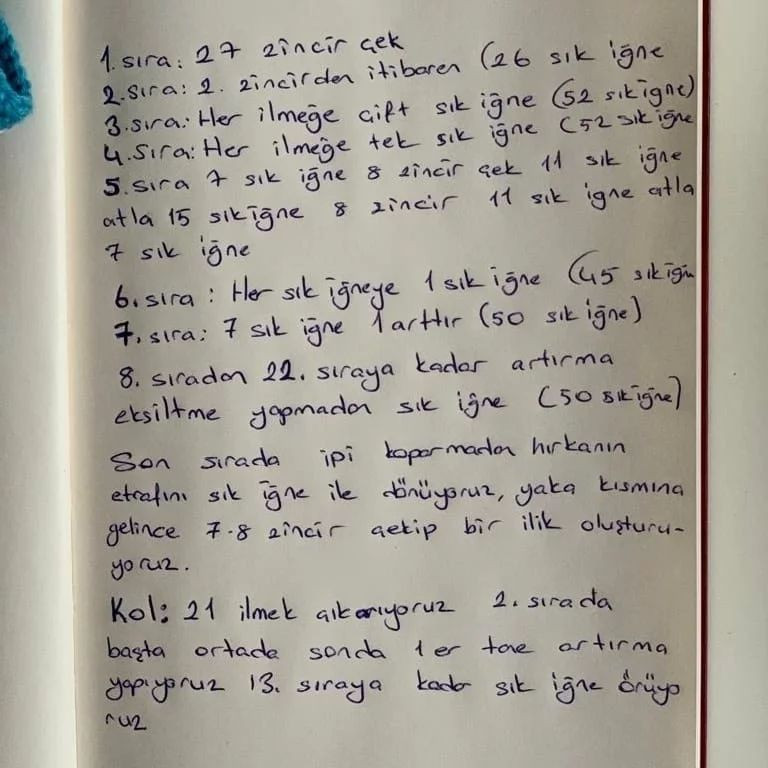 1. sıra: 27 zincir çek
2. sıra: 2. zincirden itibaren (26 sık iğne
3. sıra: Her ilmeğe çift sık iğne (52 sık iğne)
4. Sıra: Her ilmeğe tek sık iğne (52 sık iğne
5. sıra 7 sık iğne 8 zincir çek 11 sık iğne
atla 15 sık iğne 8 zincir 11 sık iğne atla
7 sık iğne
6. sıra : Her sık iğneye 1 sık iğne (45 sık iğn
7. sıra: 7 sık iğne 1 arttır (50 sık iğne)
8. sıradan 22. sıraya kadar artırma
eksiltme yapmadan sık iğne (50 sık iğne)
Son sırada ipi koparmadan hırkanın
etrafını sık iğne ile dönüyoruz, yaka kısmına
gelince 7-8 zincir çekip bir ilik oluşturu-
yoruz.
Kol: 21 ilmek çıkarıyoruz 2. sırada
başta ortada sonda 1 er tane artırma
yapıyoruz 13. sıraya kadar sık iğne örüyo
ruz